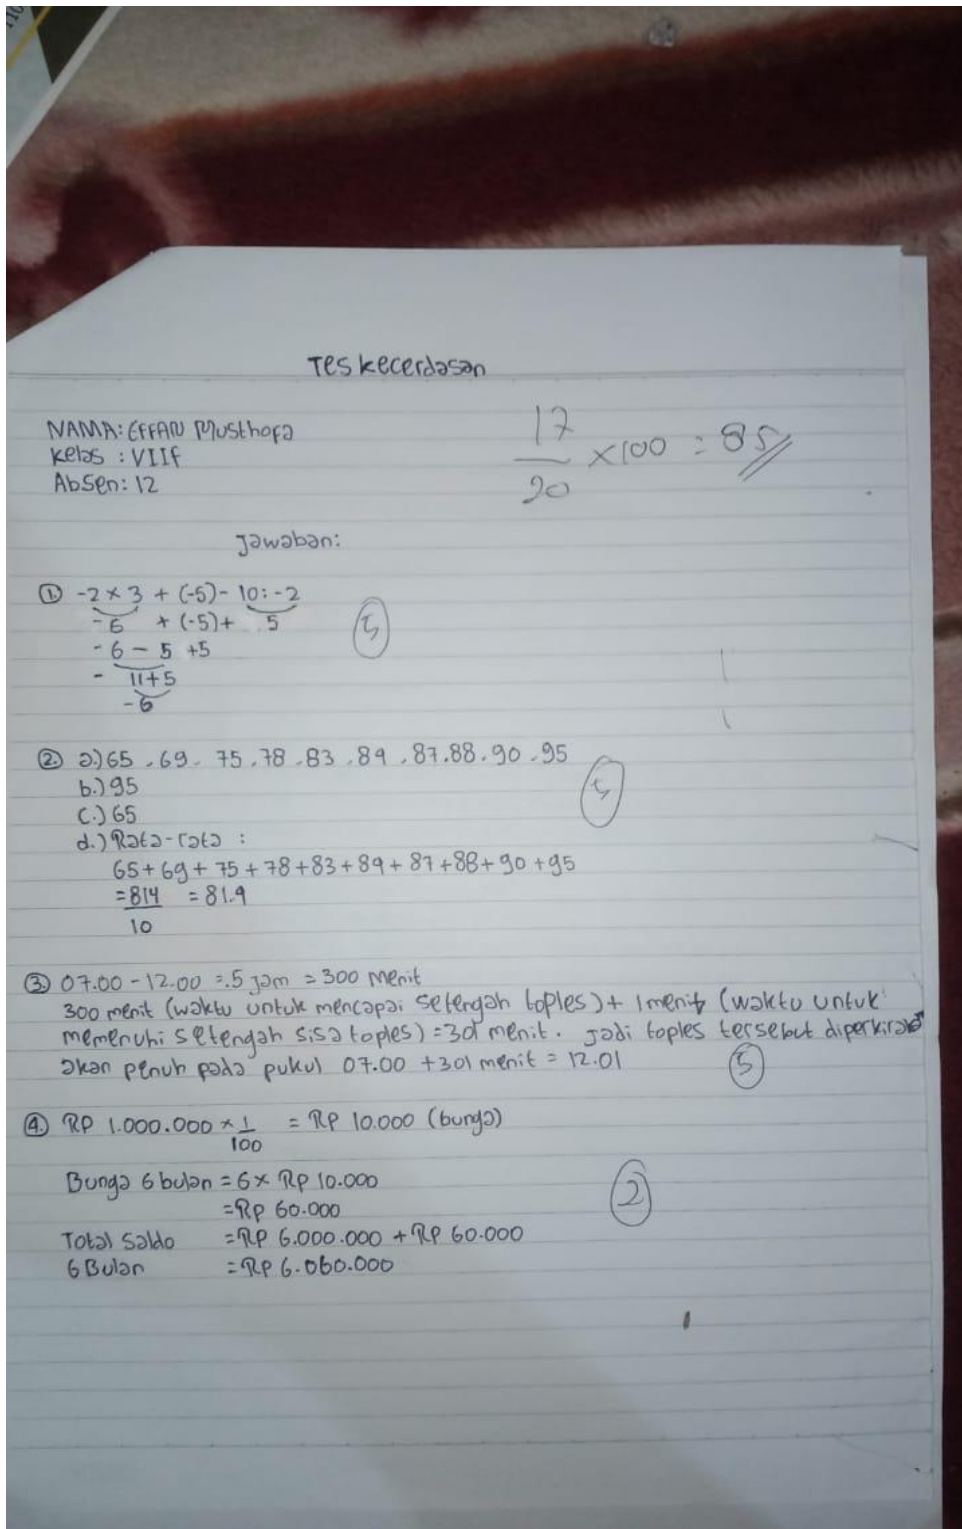 Tes kecerdasan
NAMA: EFFAN Musthofa
kelas : VIIf
AbSen: 12
17
20
×100 = 85
Jawaban:
① -2 × 3 + (-5) - 10 : -2
-6 + (-5) + 5
5
-6 - 5 + 5
- 11+5
-6
② a.) 65 . 69 . 75 . 78 . 83 . 89 . 87 . 88 . 90 . 95
5
b.) 95
c.) 65
d.) Rata-rata :
65 + 69 + 75 + 78 + 83 + 89 + 87 + 88 + 90 + 95
= 814 = 81.9
10
③ 07.00 - 12.00 = .5 jam = 300 menit
300 menit (waktu untuk mencapai setengah toples) + 1 menit (waktu untuk
memenuhi setengah sisa toples) = 301 menit. Jadi toples tersebut diperkirakan
akan penuh pada pukul 07.00 + 301 menit = 12.01
5
④ RP 1.000.000 × 1 = RP 10.000 (bunga)
100
Bunga 6 bulan = 6 × Rp 10.000
2
= Rp 60.000
Total Saldo = RP 6.000.000 + RP 60.000
6 Bulan = RP 6.060.000